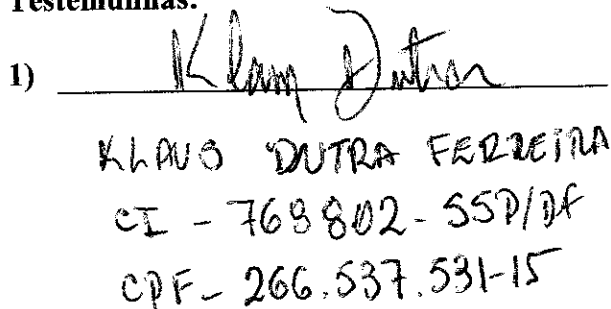 Testemunhas:
1) Klaus Dutra
KLAUS DUTRA FERREIRA
CI - 769802 - SSP/DF
CPF - 266.537.531-15